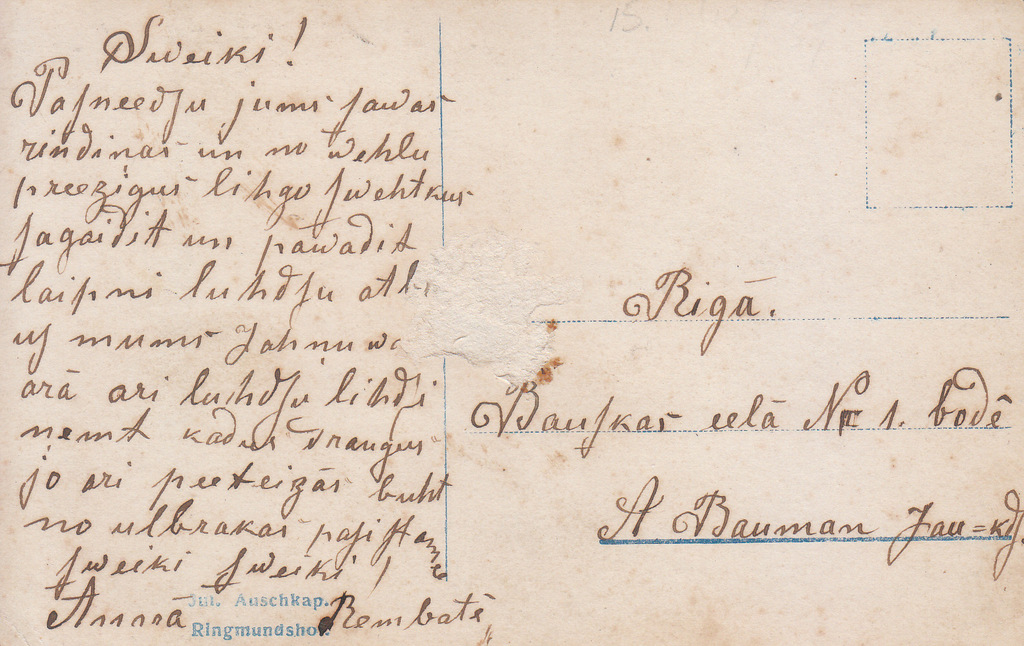 15.
Sweiki!
Pasneedsu jums sawas
rindinas un no wehlu
preezigus lihgo swehtkus
sagaidit un pawadit
laipni luhdsu
us mums Jahnu
arā ari luhdsu lihdsi
nemt kadus draugus
jo ari peeteizās buht
no ulbrakas pasistame
sweiki sweiki!
Annā Rembatē
Jul. Auschkap.
Ringmundshof.
Rigā.
Bauskas eelā № 1. bodē
A Bauman Jau=kdſ.